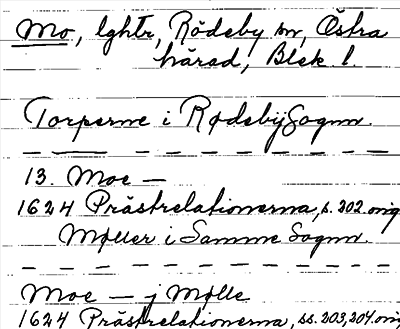 Mo, lghtr, Rödeby sn, Östra
härad, Blek l.
Torperne i RødebÿSognn.
13. Moe —
1624 Prästrelationerna, s. 202. orig
Møller i Samme Sognn.
Moe — j Mølle
1624 Prästrelationerna, ss. 203, 204. orig